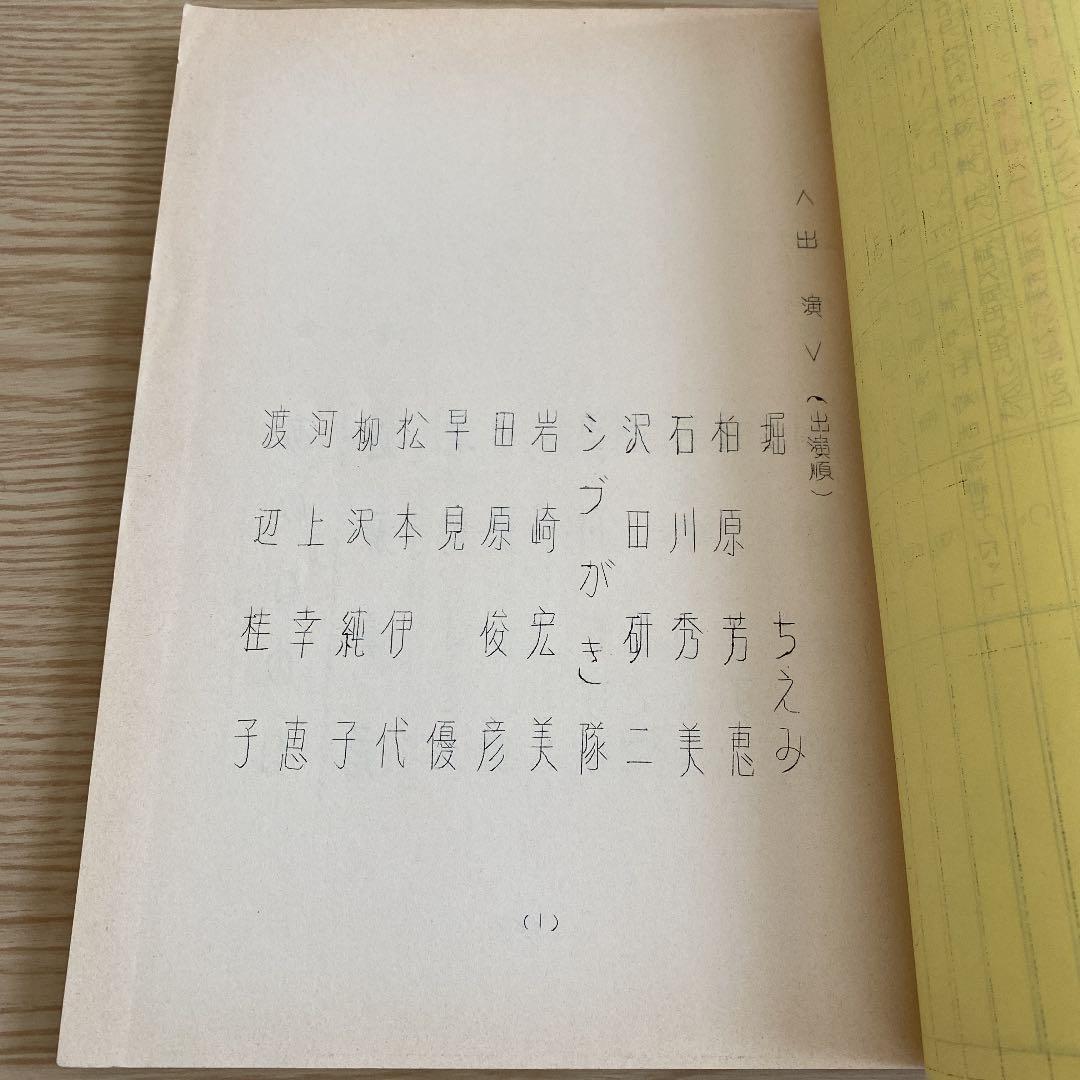 ＜出演＞（出演順）
堀ちえみ
柏原芳恵
石川秀美
沢田研二
シブがき隊
岩崎宏美
田原俊彦
早見優
松本伊代
柳沢純子
河上幸恵
渡辺桂子
（１）